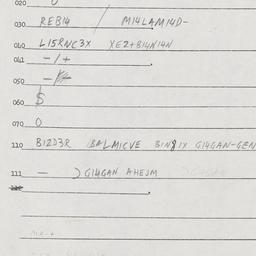 020
030 REBI4 / MI4LAMI4D-
040 LI5RNC3X XE2+BI4NI4N
041 - / +
050 -
060 $
070 O
110 BI2D3R BALMICVE BIN8IX GI4GAN-GEN
111 - ) GI4GAN AHEJM